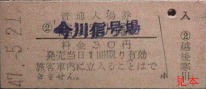 47.-5.21
普通入場券
②今川信号場
料金30円
発売当日1回限り有効
旅客車内に立入ることはで
きません。
入
②
越後寒川
見本